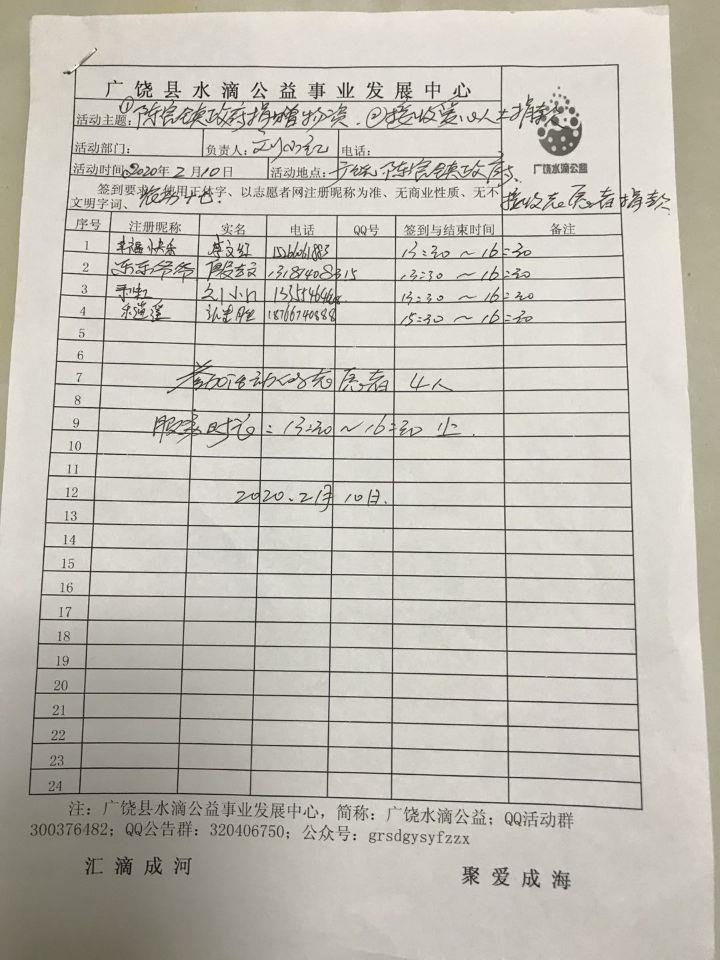 广饶县水滴公益事业发展中心
活动主题：①陈官镇政府捐赠物资.②接收爱心人士捐款
广饶水滴公益
活动部门： 负责人： 电话：
活动时间：2020年2月10日 活动地点：广饶陈官镇政府.
签到要求：使用正体字、以志愿者网注册昵称为准、无商业性质、无不
文明字词、
接收志愿者捐款
序号 注册昵称 实名 电话 QQ号 签到与结束时间 备注
1 幸福快乐 13:30～16:30
2 乐乐爷爷 13:30～16:30
3 13:30～16:30
4 乐逍遥 18766740888 15:30～16:30
5
6
7 参加活动的志愿者 4人
8
9 服务时间：13:30～16:30止.
10
11
12 2020.2月10日.
13
14
15
16
17
18
19
20
21
22
23
24
注：广饶县水滴公益事业发展中心，简称：广饶水滴公益；QQ活动群
300376482；QQ公告群：320406750；公众号：grsdgysyfzzx
汇滴成河
聚爱成海